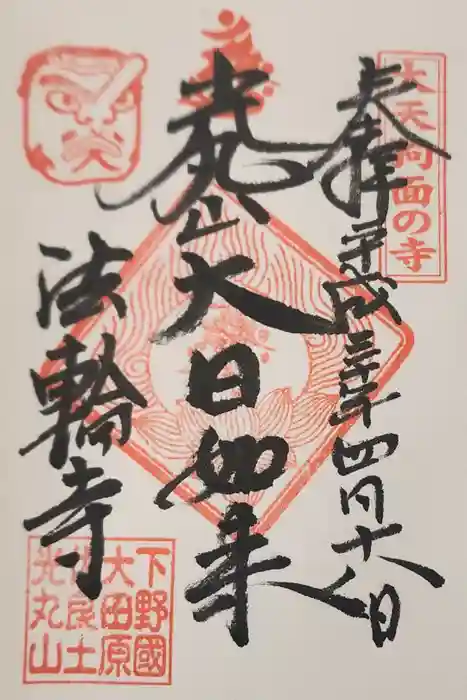 大天狗面の寺
奉拝 平成三十年四月十八日
光丸山
大日如来
法輪寺
下野國
大田原
佐良土
光丸山